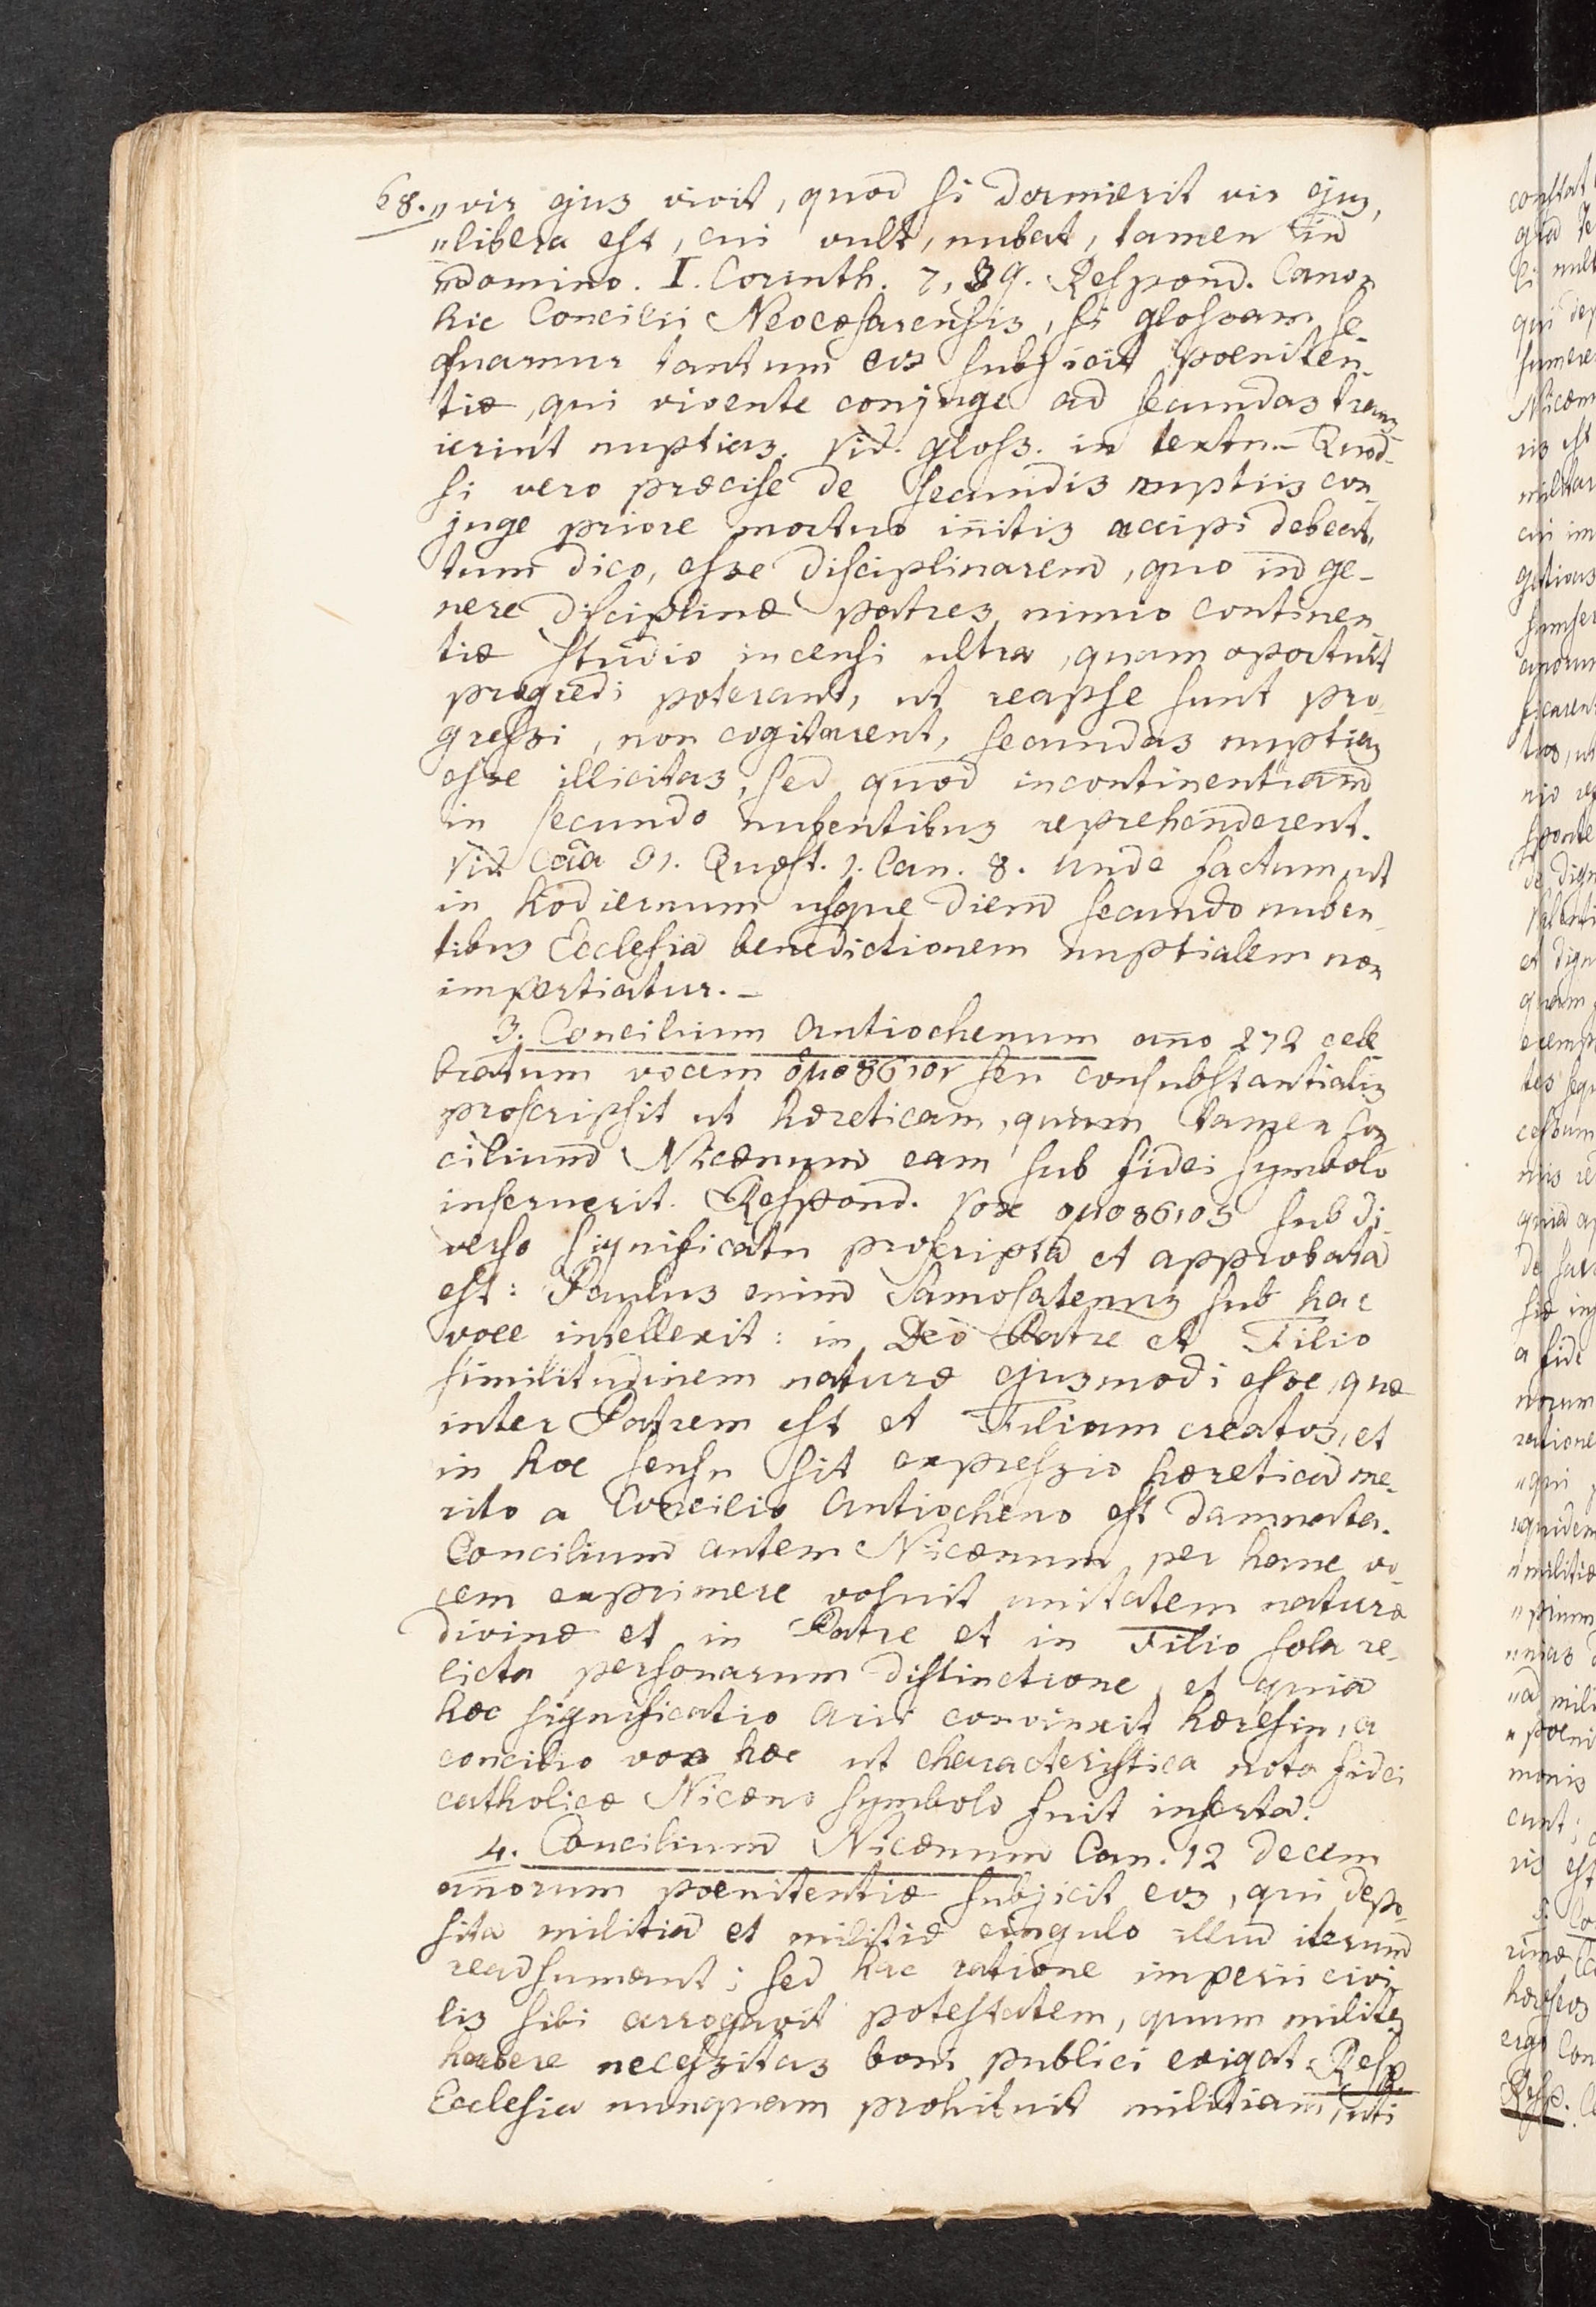 68. „vir ejus vivit, quod si dormierit vir ejus,
„libera est, cui vult, nubat, tamen in
„domino. I. Corinth. 7, 39. Respond. Canon
hic Concilii Neocæsarensis, si glossam se-
quamur tantum eos subjicit poeniten-
tiæ, qui vivente conjuge ad secundas trans-
ierint nuptias. Vid. gloss. in textu. – Quod-
si vero præcise de secundis nuptiis con-
juge priore mortuo initis accipi debeat,
tum dico, esse disciplinarem, quo in ge-
nere disciplinæ patres nimio continen
tiæ studio incensi ultra, quam oportuit
progredi poterant, ut reapse sunt pro-
gressi, non cogitarent, secundas nuptias
esse illicitas, sed quod incontinentiam
in secundo nubentibus reprehenderent.
Vid Cãa 31. Quæst. 1. Can. 8. unde factum, ut
in hodiernum usque diem secundo nuben-
tibus Ecclesia benedictionem nuptialem non
impertiatur. –
3. Concilium Antiochenum año 272 cele
bratum vocem ὁμοȣσιον seu consubstantialis
proscripsit ut hæreticam, quum tamen Con-
cilium Nicænum eam sub fidei symbolo
inseruerit. Respond. Vox ομοȣσιος sub di-
verso significatu proscripta et approbata
est: Paulus enim Samosatenus sub hac
voce intellexit: in Deo Patre et Filio
similitudinem naturæ ejusmodi esse, quæ
inter Patrem est et Filium creatos, et
in hoc sensu sit expressio hæretica me-
rito a Concilio Antiocheno est damnata.
Concilium autem Nicænum per hanc vo-
cem exprimere voluit unitatem naturæ
divinæ et in Patre et in Filio sola re-
licta personarum distinctione, et quia
hæc significatio Arii convinxit hæresin, a
concilio vox hæc ut characteristica nota fidei
catholicæ Nicæno symbolo fuit inserta.
4. Concilium Nicænum Can. 12 decem
añorum poenitentiæ subjicit eos, qui depo-
sita militia et militiæ cingulo illud iterum
readsumant; sed hac ratione imperii civi-
lis sibi arrogavit potestatem, quum milites
habere necessitas boni publici exigat. Resp.
Ecclesia nunquam prohibuit militiam, uti